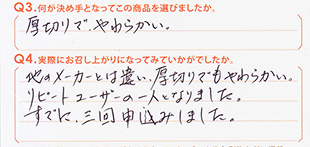 Q3.何が決め手となってこの商品を選びましたか。
厚切りで、やわらかい。
Q4.実際にお召し上がりになってみていかがでしたか。
他のメーカーとは違い、厚切りでもやわらかい。
リピートユーザーの一人となりました。
すでに、三回申込みしました。